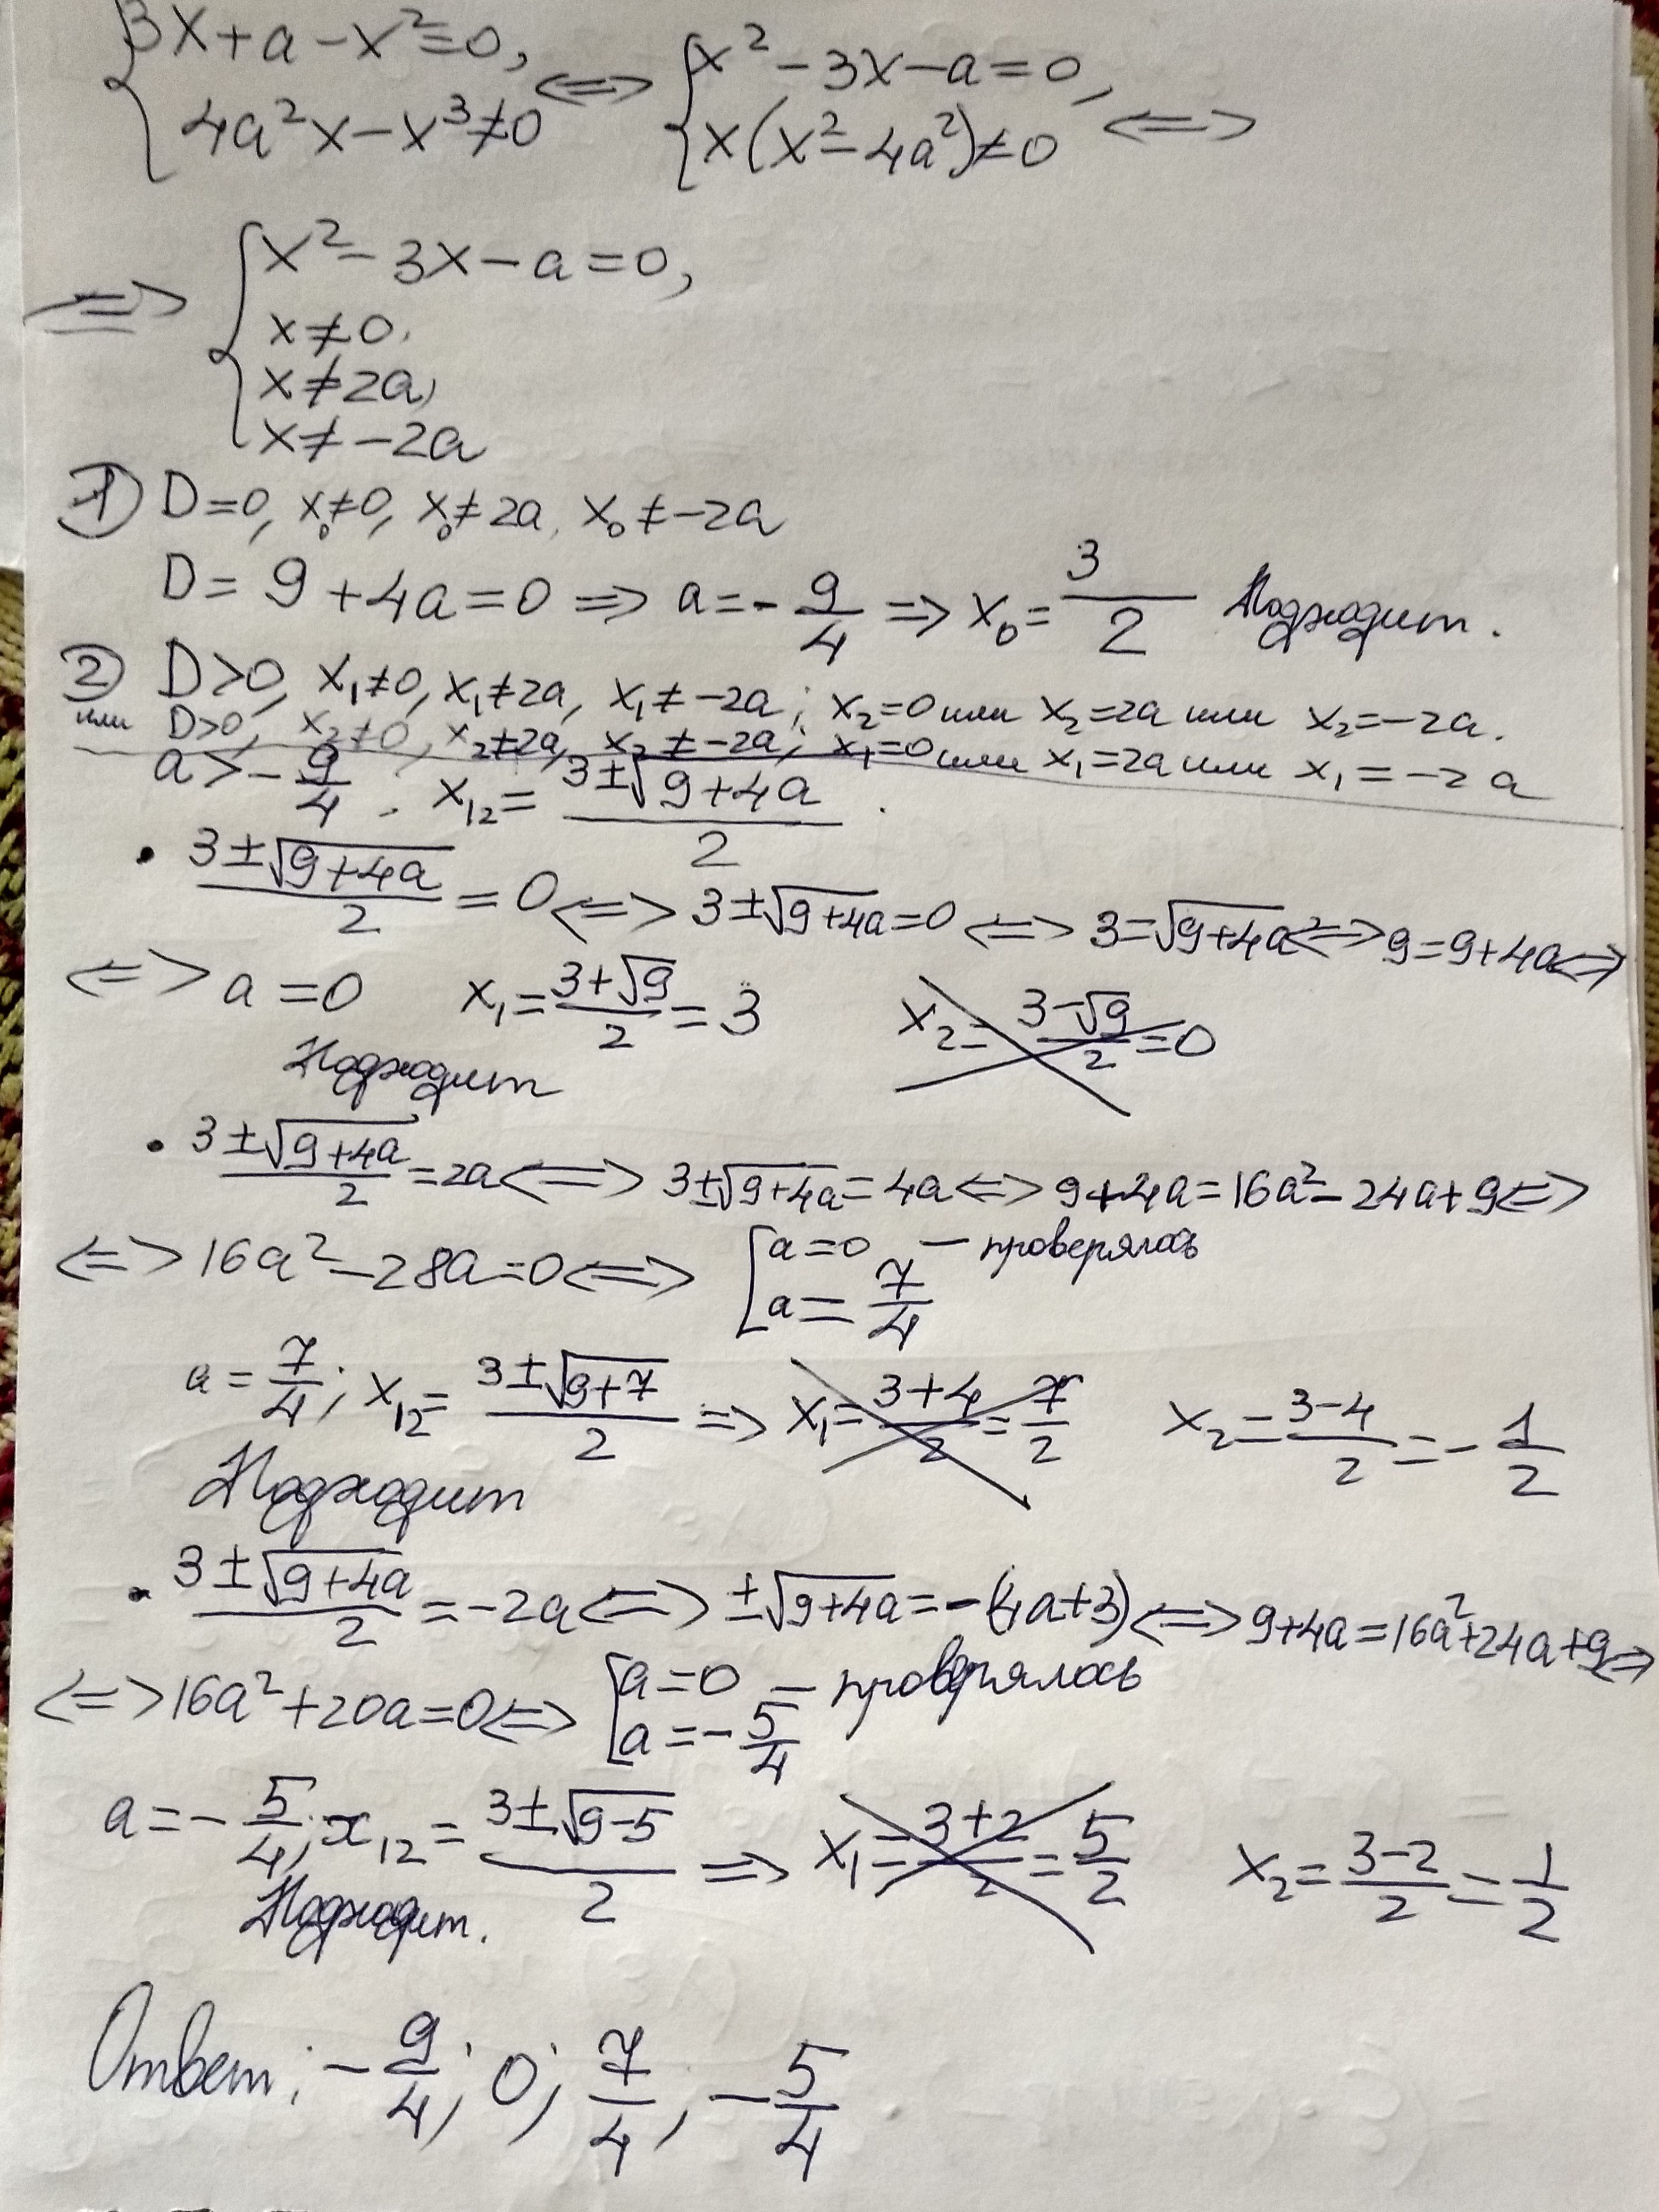 {3x+a-x²=0, ⇔ {x²-3x-a=0, ⇔
{4a²x-x³≠0 {x(x²-4a²)≠0
⇔ {x²-3x-a=0,
x≠0,
x≠2a,
x≠-2a
① D=0, x₀≠0, x₀≠2a, x₀≠-2a
D=9+4a=0 ⇒ a=-9/4 ⇒ x₀=3/2 Подходит.
② D>0, x₁≠0, x₁≠2a, x₁≠-2a; x₂=0 или x₂=2a или x₂=-2a.
или D>0, x₂≠0, x₂≠2a, x₂≠-2a; x₁=0 или x₁=2a или x₁=-2a
a>-9/4. x₁₂=(3±√(9+4a))/2.
• (3±√(9+4a))/2=0 ⇔ 3±√(9+4a)=0 ⇔ 3=√(9+4a) ⇔ 9=9+4a ⇔
⇔ a=0 x₁=(3+√9)/2=3 x₂=(3-√9)/2=0
Подходит
• (3±√(9+4a))/2=2a ⇔ 3±√(9+4a)=4a ⇔ 9+4a=16a²-24a+9 ⇔
⇔ 16a²-28a=0 ⇔ [a=0 - проверялось
[a=7/4
a=7/4; x₁₂=(3±√(9+7))/2 ⇒ x₁=(3+4)/2=7/2 x₂=(3-4)/2=-1/2
Подходит
• (3±√(9+4a))/2=-2a ⇔ ±√(9+4a)=-(4a+3) ⇔ 9+4a=16a²+24a+9 ⇔
⇔ 16a²+20a=0 ⇔ [a=0 - проверялось
[a=-5/4
a=-5/4; x₁₂=(3±√(9-5))/2 ⇒ x₁=(3+2)/2=5/2 x₂=(3-2)/2=1/2
Подходит.
Ответ: -9/4; 0; 7/4, -5/4